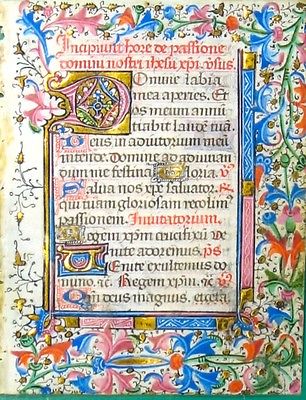 Incipiunt hore de passione
domini nostri ihesu xpi. vsus.
Domine labia
mea aperies. Et
os meum annū
tiabit laudē tuā.
Deus in adiutorium meū
intende. Domine ad adiuuan
dum me festina Gloria. v̄
Salua nos xpe saluator.
qui tuam gloriosam recolim9
passionem. Inuitatorium.
Regem xpm crucifixū Ve
nite adoremus. ps
Venite exultemus do
mino. Regem xpm. v̄
Qm deus magnus.